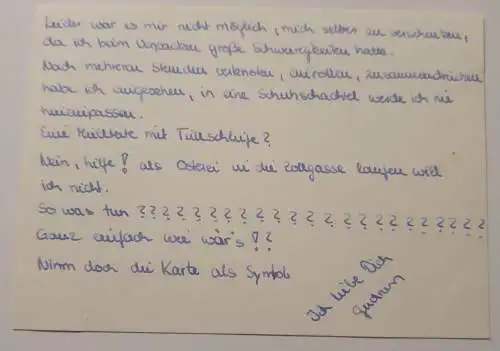 Leider war es mir nicht möglich, mich selber zu verschenken,
da ich beim Einpacken große Schwierigkeiten hatte.
Nach mehreren Stunden verknoten, einrollen, zusammendrücken
habe ich eingesehen, in eine Schuhschachtel werde ich nie
hineinpassen.
Eine mit Tüllschleife?
Nein, hilfe! als Osterei in die Zollgasse laufen will
ich nicht.
So was tun ????????????????????????
Ganz einfach wie wär's !?
Nimm doch die Karte als Symbol
Ich liebe Dich
Gudrun